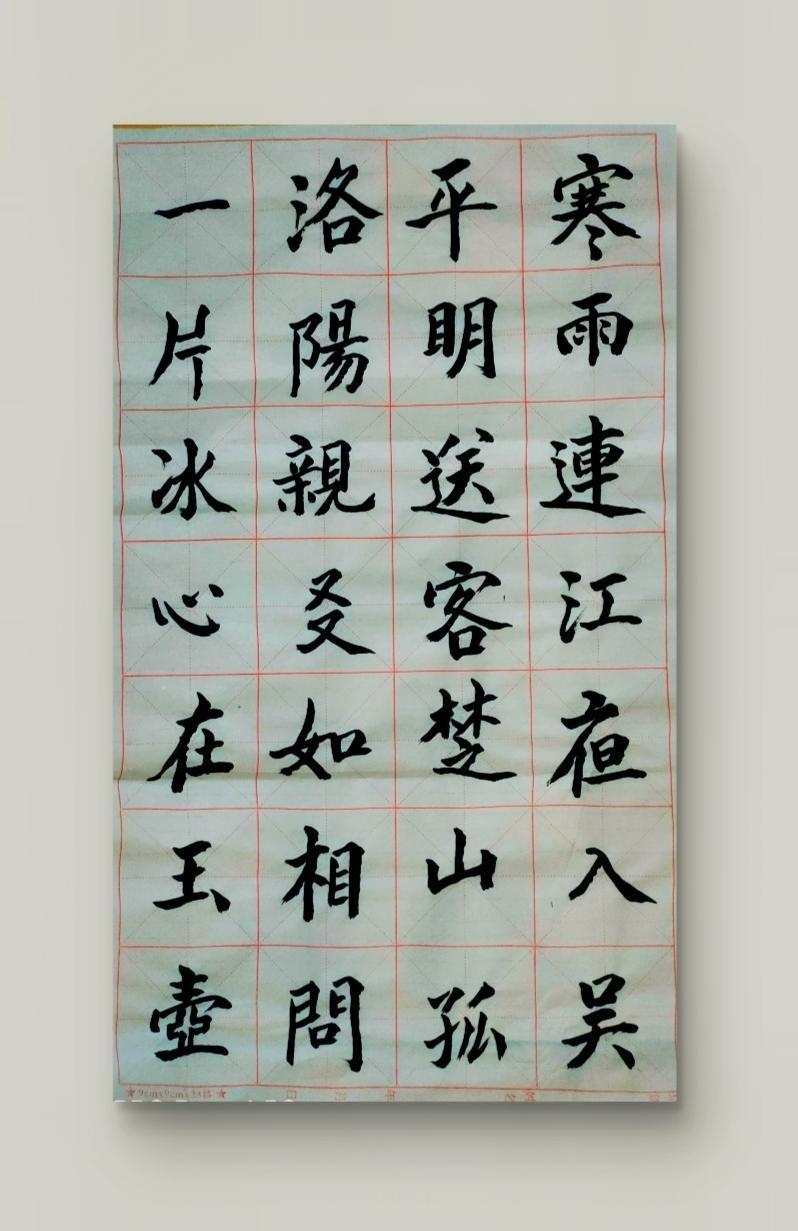 寒雨連江亱入吴
平明送客楚山孤
洛陽親㕛如相問
一片冰心在玉壺